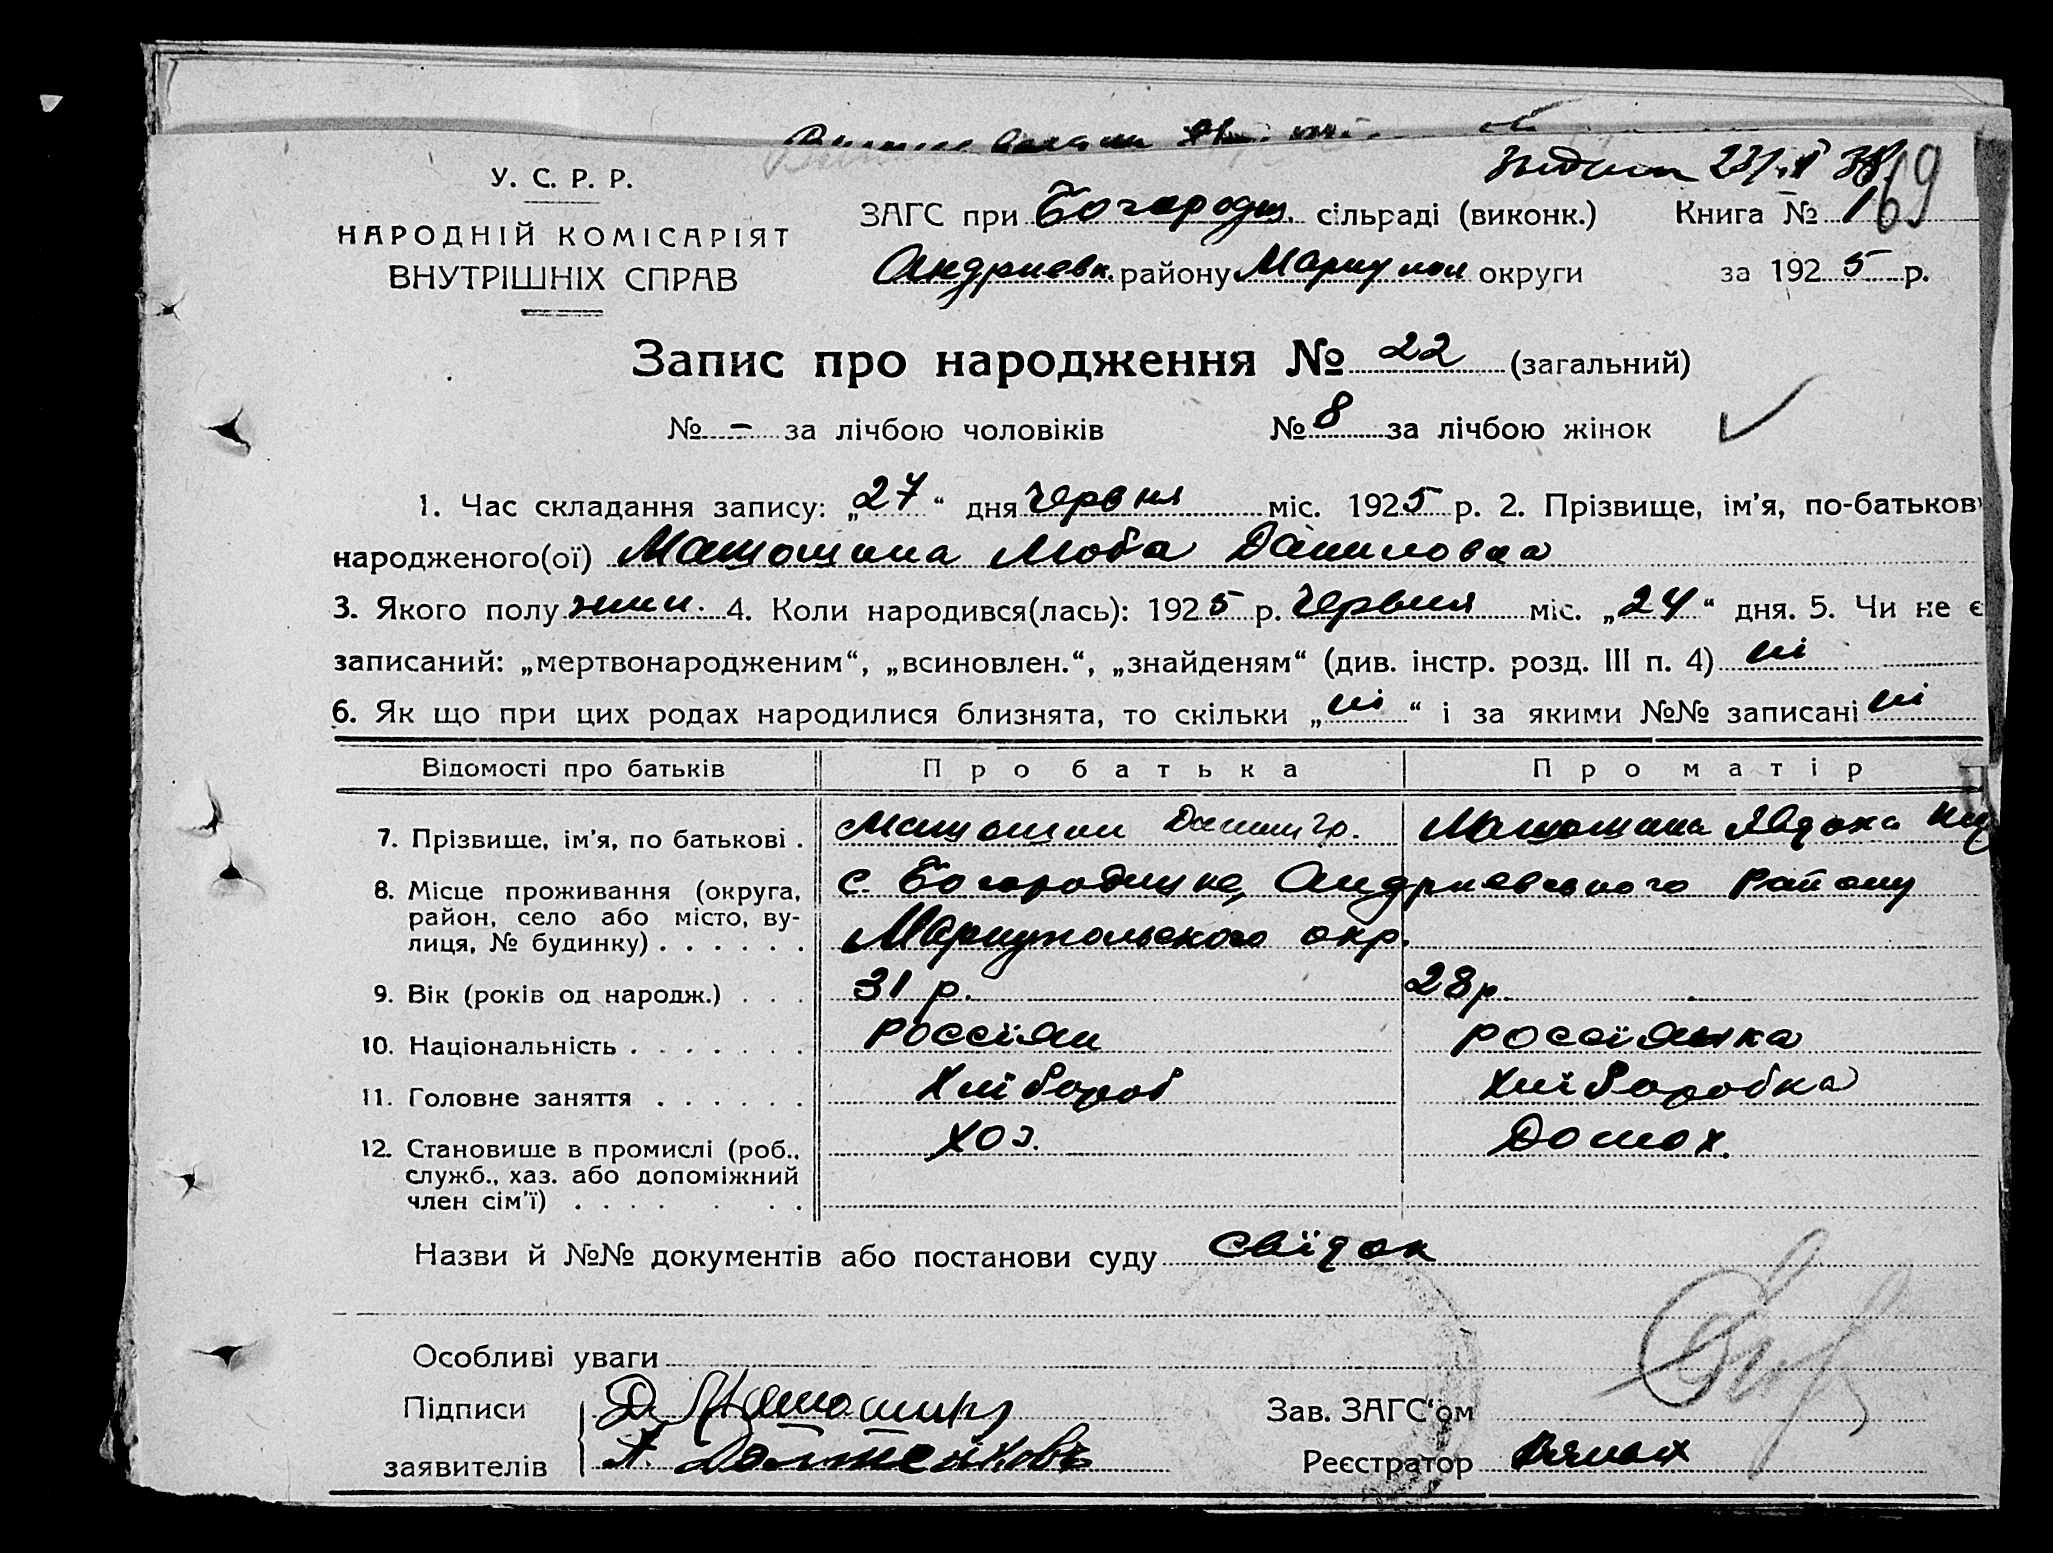 У. С. Р. Р.
НАРОДНІЙ КОМІСАРІЯТ
ВНУТРІШНІХ СПРАВ
69
ЗАГС при Богородиц. сільраді (виконк.) Книга № 1
Андриевк. району Мариупол округи за 1925 р.
Запис про народження № 22 (загальний)
№ - за лічбою чоловіків № 8 за лічбою жінок
1. Час складання запису: „27“ дня червня міс. 1925 р. 2. Прізвище, ім'я, по-батькові
народженого(ої) Матюшина Люба Даниловна
3. Якого полу жин. 4. Коли народився(лась): 1925 р. Червня міс. „24“ дня. 5. Чи не є
записаний: „мертвонародженим“, „всиновлен.“, „знайденям“ (див. інстр. розд. III п. 4) ні
6. Як що при цих родах народилися близнята, то скільки „ні“ і за якими №№ записані ні
Відомості про батьків Про батька Про матір
7. Прізвище, ім'я, по батькові . Матюшин Данил Гр. Матюшина Явдоха
8. Місце проживання (округа, район, село або місто, ву-
лиця, № будинку) . . . . . . с. Богородицке, Андриевского Району
Мариупольского окр.
9. Вік (років од народж.) . . . 31 р. 28 р.
10. Національність . . . . . . . Россіян россіянка
11. Головне заняття . . . . . . Хлібороб Хліборобка
12. Становище в промислі (роб., служб., хаз. або допоміжний
член сім'ї) . . . . . . . Хоз. Домох.
Назви й №№ документів або постанови суду Свідок
Особливі уваги
Підписи Д. Матюшинъ Зав. ЗАГС'ом
заявителів Реєстратор